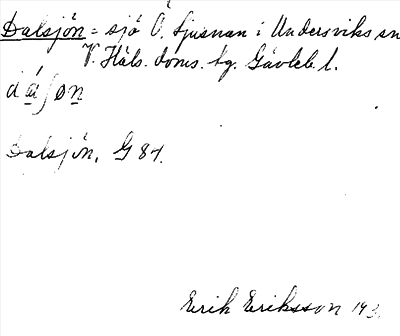 Dalsjön = sjö Ö. Ljusnan i Undersviks sn
V. Häls. doms. tg. Gävleb. l.
Dalsjön, G 84.
Erik Eriksson 193